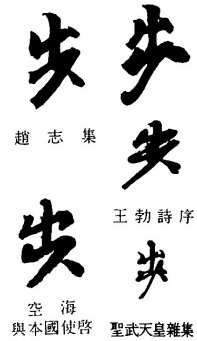 步
趙志集
步
步
王勃詩序
步
空海
與本國使啓
步
聖武天皇雜集